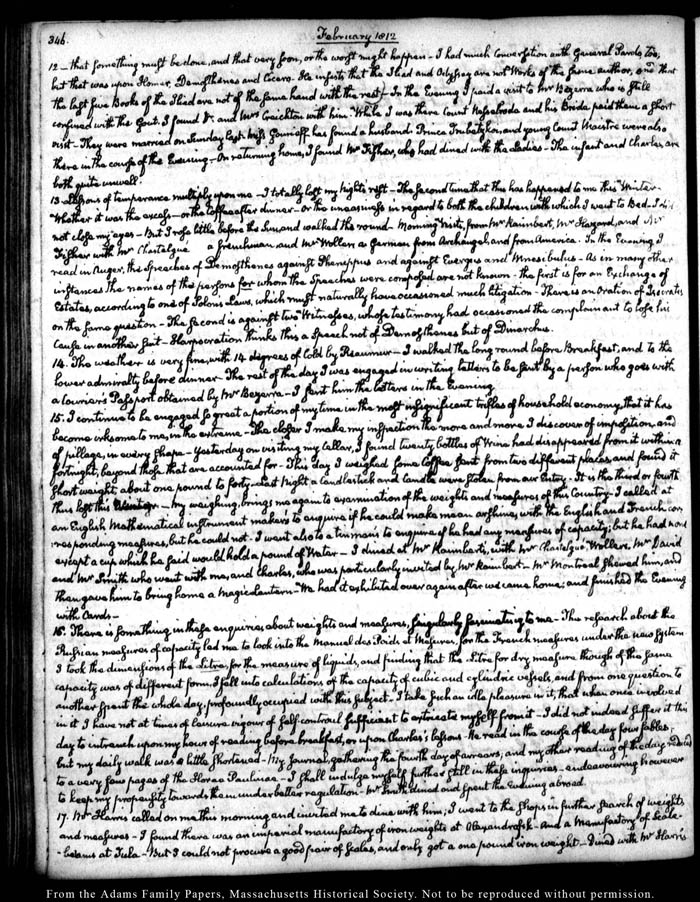 346.
February 1812
12 — that something must be done, and that very soon, or the worst might happen — I had much Conversation with General Pardo, too,
but that was upon Homer, Demosthenes and Cicero. He insists that the Iliad and Odyssey are not Works of the same author, and that
the last five Books of the Iliad are not of the same hand with the rest — In the Evening I paid a visit to Mr Bezerra who is still
confined with the Gout. I found Dr. and Mrs Creighton with him. While I was there Count Nesselrode and his Bride paid them a short
visit — They were married on Sunday last. Miss Gourieff has found a husband. Prince Trubetzkoi, and young Count Maistre were also
there in the course of the Evening — On returning home, I found Mr Fisher, who had dined with the Ladies — The infant and Charles, are
both quite unwell.
13. Lessons of temperance multiply upon me — I totally lost my Night's rest — The second time that this has happened to me this Winter.
Whether it was the excess — or the Coffee after dinner — or the uneasiness in regard to both the children with which I went to Bed. I did
not close my eyes — But I rose little before the Sun and walked the round — Morning Visits, from Mr Raimbert, Mr Hazard, and Mr
Fisher with Mr Chastelgue a frenchman and Mr Wollers a German from Archangel and from America. In the Evening I
read in Auger, the Speeches of Demosthenes against Phenippus and against Evergus and Mnesibulus — As in many other
instances the names of the persons for whom the Speeches were composed are not known — the first is for an Exchange of
Estates, according to one of Solons Laws, which must naturally have occasioned much litigation — There is an Oration of Isocrates
on the same question — The second is against two Witnesses, whose testimony had occasioned the complainant to lose his
Cause in another suit — Harpocration thinks this a Speech not of Demosthenes but of Dinarchus.
14. The weather is very fine, with 14 degrees of cold by Reaumur — I walked the long round before Breakfast; and to the
lower admiralty before dinner. The rest of the day I was engaged in writing letters to be sent by a person who goes with
a Courier's Passport obtained by Mr Bezerra — I sent him the letters in the Evening
15. I continue to be engaged so great a portion of my time in the most insignificant trifles of household economy, that it has
become irksome to me, in the extreme — The closer I make my inspection the more and more I discover of imposition, and
of pillage, in every shape — Yesterday on visiting my Cellar, I found twenty bottles of Wine had disappeared from it within a
fortnight, beyond those that are accounted for — This day I weighed some Coffee sent from two different places, and found it
short weight about one pound to forty — Last Night a candlestick and candle were stolen from our Entry — It is the third or fourth
thus lost this Winter — my weighing, brings me again to examination of the weights and measures of this Country — I called at
an English Mathematical instrument maker's to enquire if he could make me an arshine, with the English and French, cor-
responding measures, but he could not — I went also to a tinman's to enquire if he had any measures of capacity; but he had none
except a cup which he said would hold a pound of Water — I dined at Mr Raimbert's, with Mr Chastelgue, Wollers, Mr David
and Mr Smith who went with me, and Charles, who was particularly invited by Mr Raimbert — Mr Montreal shewed him, and
then gave him to bring home a Magic Lantern — We had it exhibited over again after we came home; and finished the Evening
with Cards —
16. There is something in these enquiries about weights and measures, singularly fascinating to me — The research about the
Russian measures of capacity led me to look into the Manuel des Poids et Mesures, for the French measures under the new System
I took the dimensions of the Litre, for the measure of liquids, and finding that the Litre for dry measure though of the same
capacity was of different form, I fell into calculations of the capacity of cubic and cylindric vessels, and from one question to
another spent the whole day, profoundly occupied with this subject — I take such an idle pleasure in it, that when once involved
in it I have not at times of leisure vigour of self-controul sufficient to extricate myself from it — I did not indeed suffer it this
day to intrench upon my hour of reading before breakfast, or upon Charles's lessons — He read in the course of the day four fables;
but my daily walk was a little shortened — My Journal, gathering the fourth day of arrears, and my other reading of the day reduced
to a very few pages of the Horae Paulinae — I shall indulge myself further still in these inquiries — endeavouring however
to keep my propensity towards them under better regulation — Mr Smith dined and spent the Evening abroad.
17. Mr Harris called on me this morning and invited me to dine with him; I went to the shops in further search of weights
and measures — I found there was an imperial manufactory of iron weights at Alexandrofsk — And a Manufactory of Scale-
-beams at Tula — But I could not procure a good pair of scales, and only got a one pound iron weight — Dined with Mr Harris
From the Adams Family Papers, Massachusetts Historical Society. Not to be reproduced without permission.